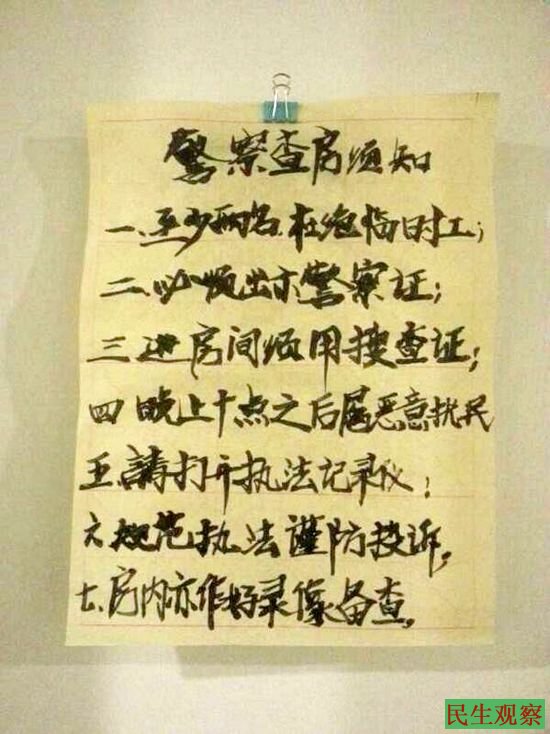 警察查房须知
一、至少两名.杜绝临时工；
二、必须出示警察证；
三 进房间须用搜查证；
四 晚上十点之后属恶意扰民
五.請打开执法记录仪；
六.规范执法谨防投诉，
七、房内亦作好录像备查，
民生观察